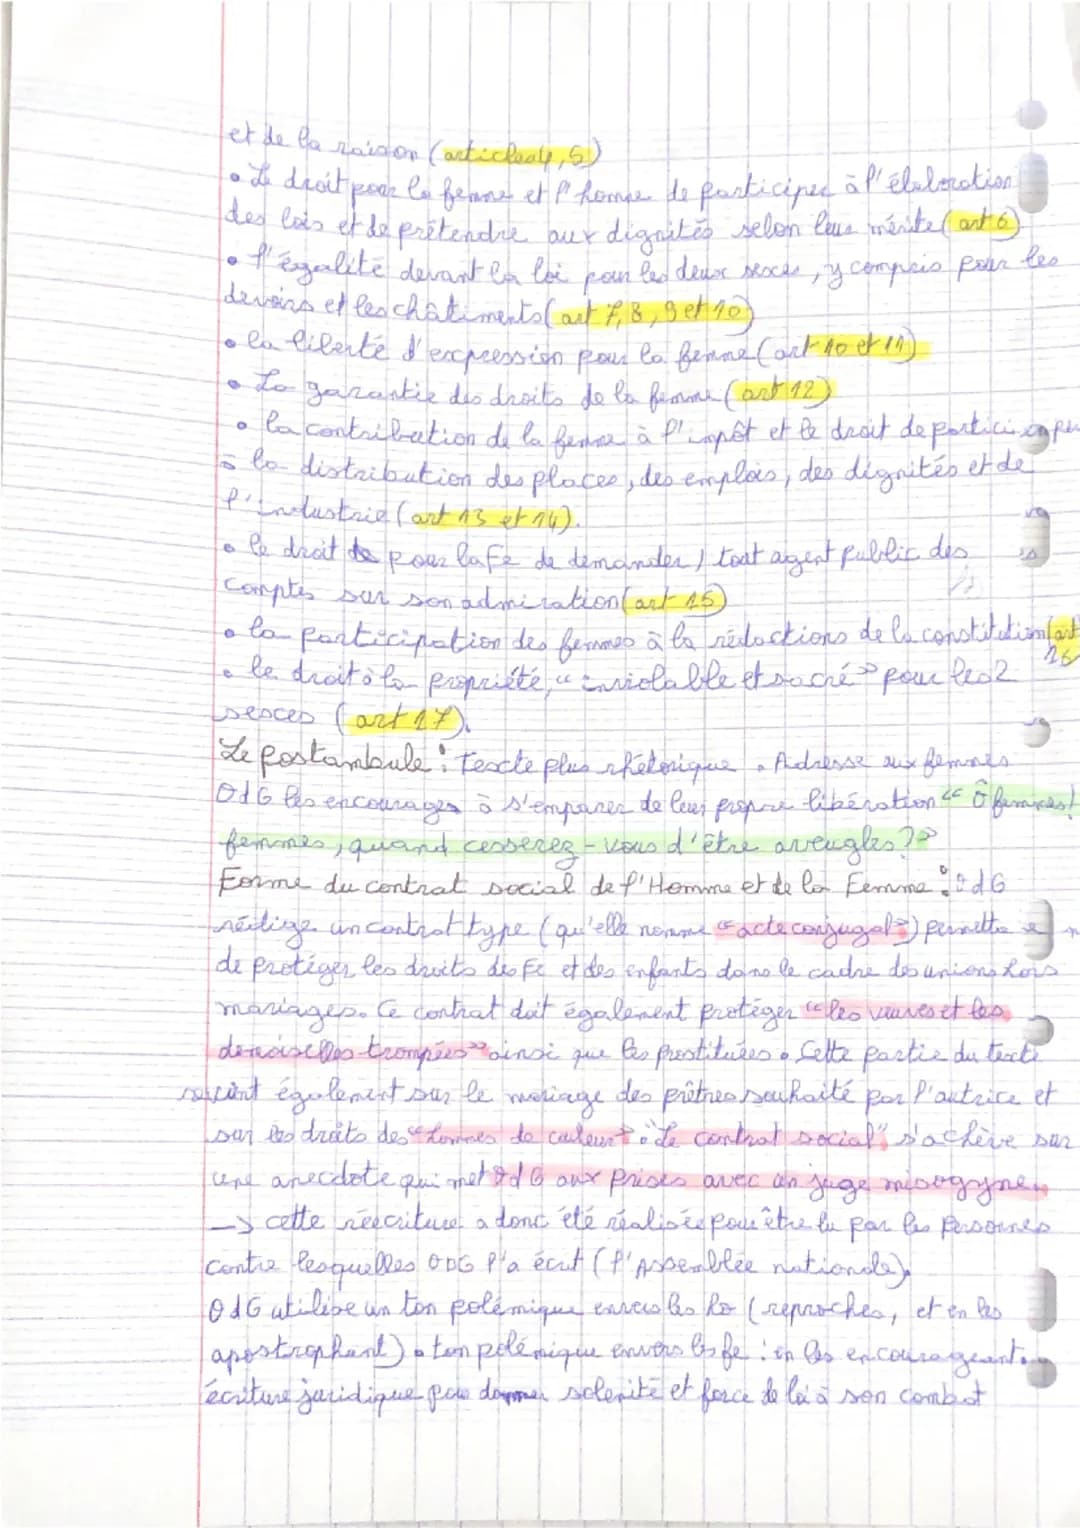 et de la raison (articles 4, 5)
• Le droit pour la femme et l'homme de participer à l'élaboration
des lois et de prétendre aux dignités selon leur mérite (art 6)
• l'égalité devant la loi pour les deux sexes, y compris pour les
devoirs et les châtiments (art 7, 8, 9 et 10)
• la liberté d'expression pour la femme (art 10 et 11)
• La garantie des droits de la femme (art 12)
• la contribution de la femme à l'impôt et le droit de participer
à la distribution des places, des emplois, des dignités et de
l'industrie (art 13 et 14).
• le droit pour la fe de demander à tout agent public des
comptes sur son admiration (art 15)
• la participation des femmes à la rédactions de la constitution (art 16
• le droit à la propriété, "inviolable et sacré" pour les 2
sexces (art 17).
Le postambule : texcte plus rhétorique. Adresse aux femmes
OdG les encourages à s'emparer de leur propre libération "Ô femmes!
femmes, quand cesserez-vous d'être aveugles ?"
Forme du contrat social de l'Homme et de la Femme : OdG
rédige un contrat type (qu'elle nomme "acte conjugal")
de protéger les droits des fe et des enfants dans le cadre des unions hors
mariages. Ce contrat doit également protéger "les veuves et les
demoiselles trompées" ainsi que les prostituées. Cette partie du texte
revient également sur le mariage des prêtres souhaité par l'autrice et
sur les droits des "hommes de couleur". "Le contrat social" s'achève sur
une anecdote qui met OdG aux prises avec un juge misogyne.
-> cette réécriture a donc été réalisée pour être lu par les personnes
contre lesquelles ODG l'a écrit (l'Assemblée nationale).
OdG utilise un ton polémique envers les ho (reproches, et en les
apostrophant). ton polémique envers les fe : en les encourageant.
écriture juridique pour donner solenité et force de loi à son combat